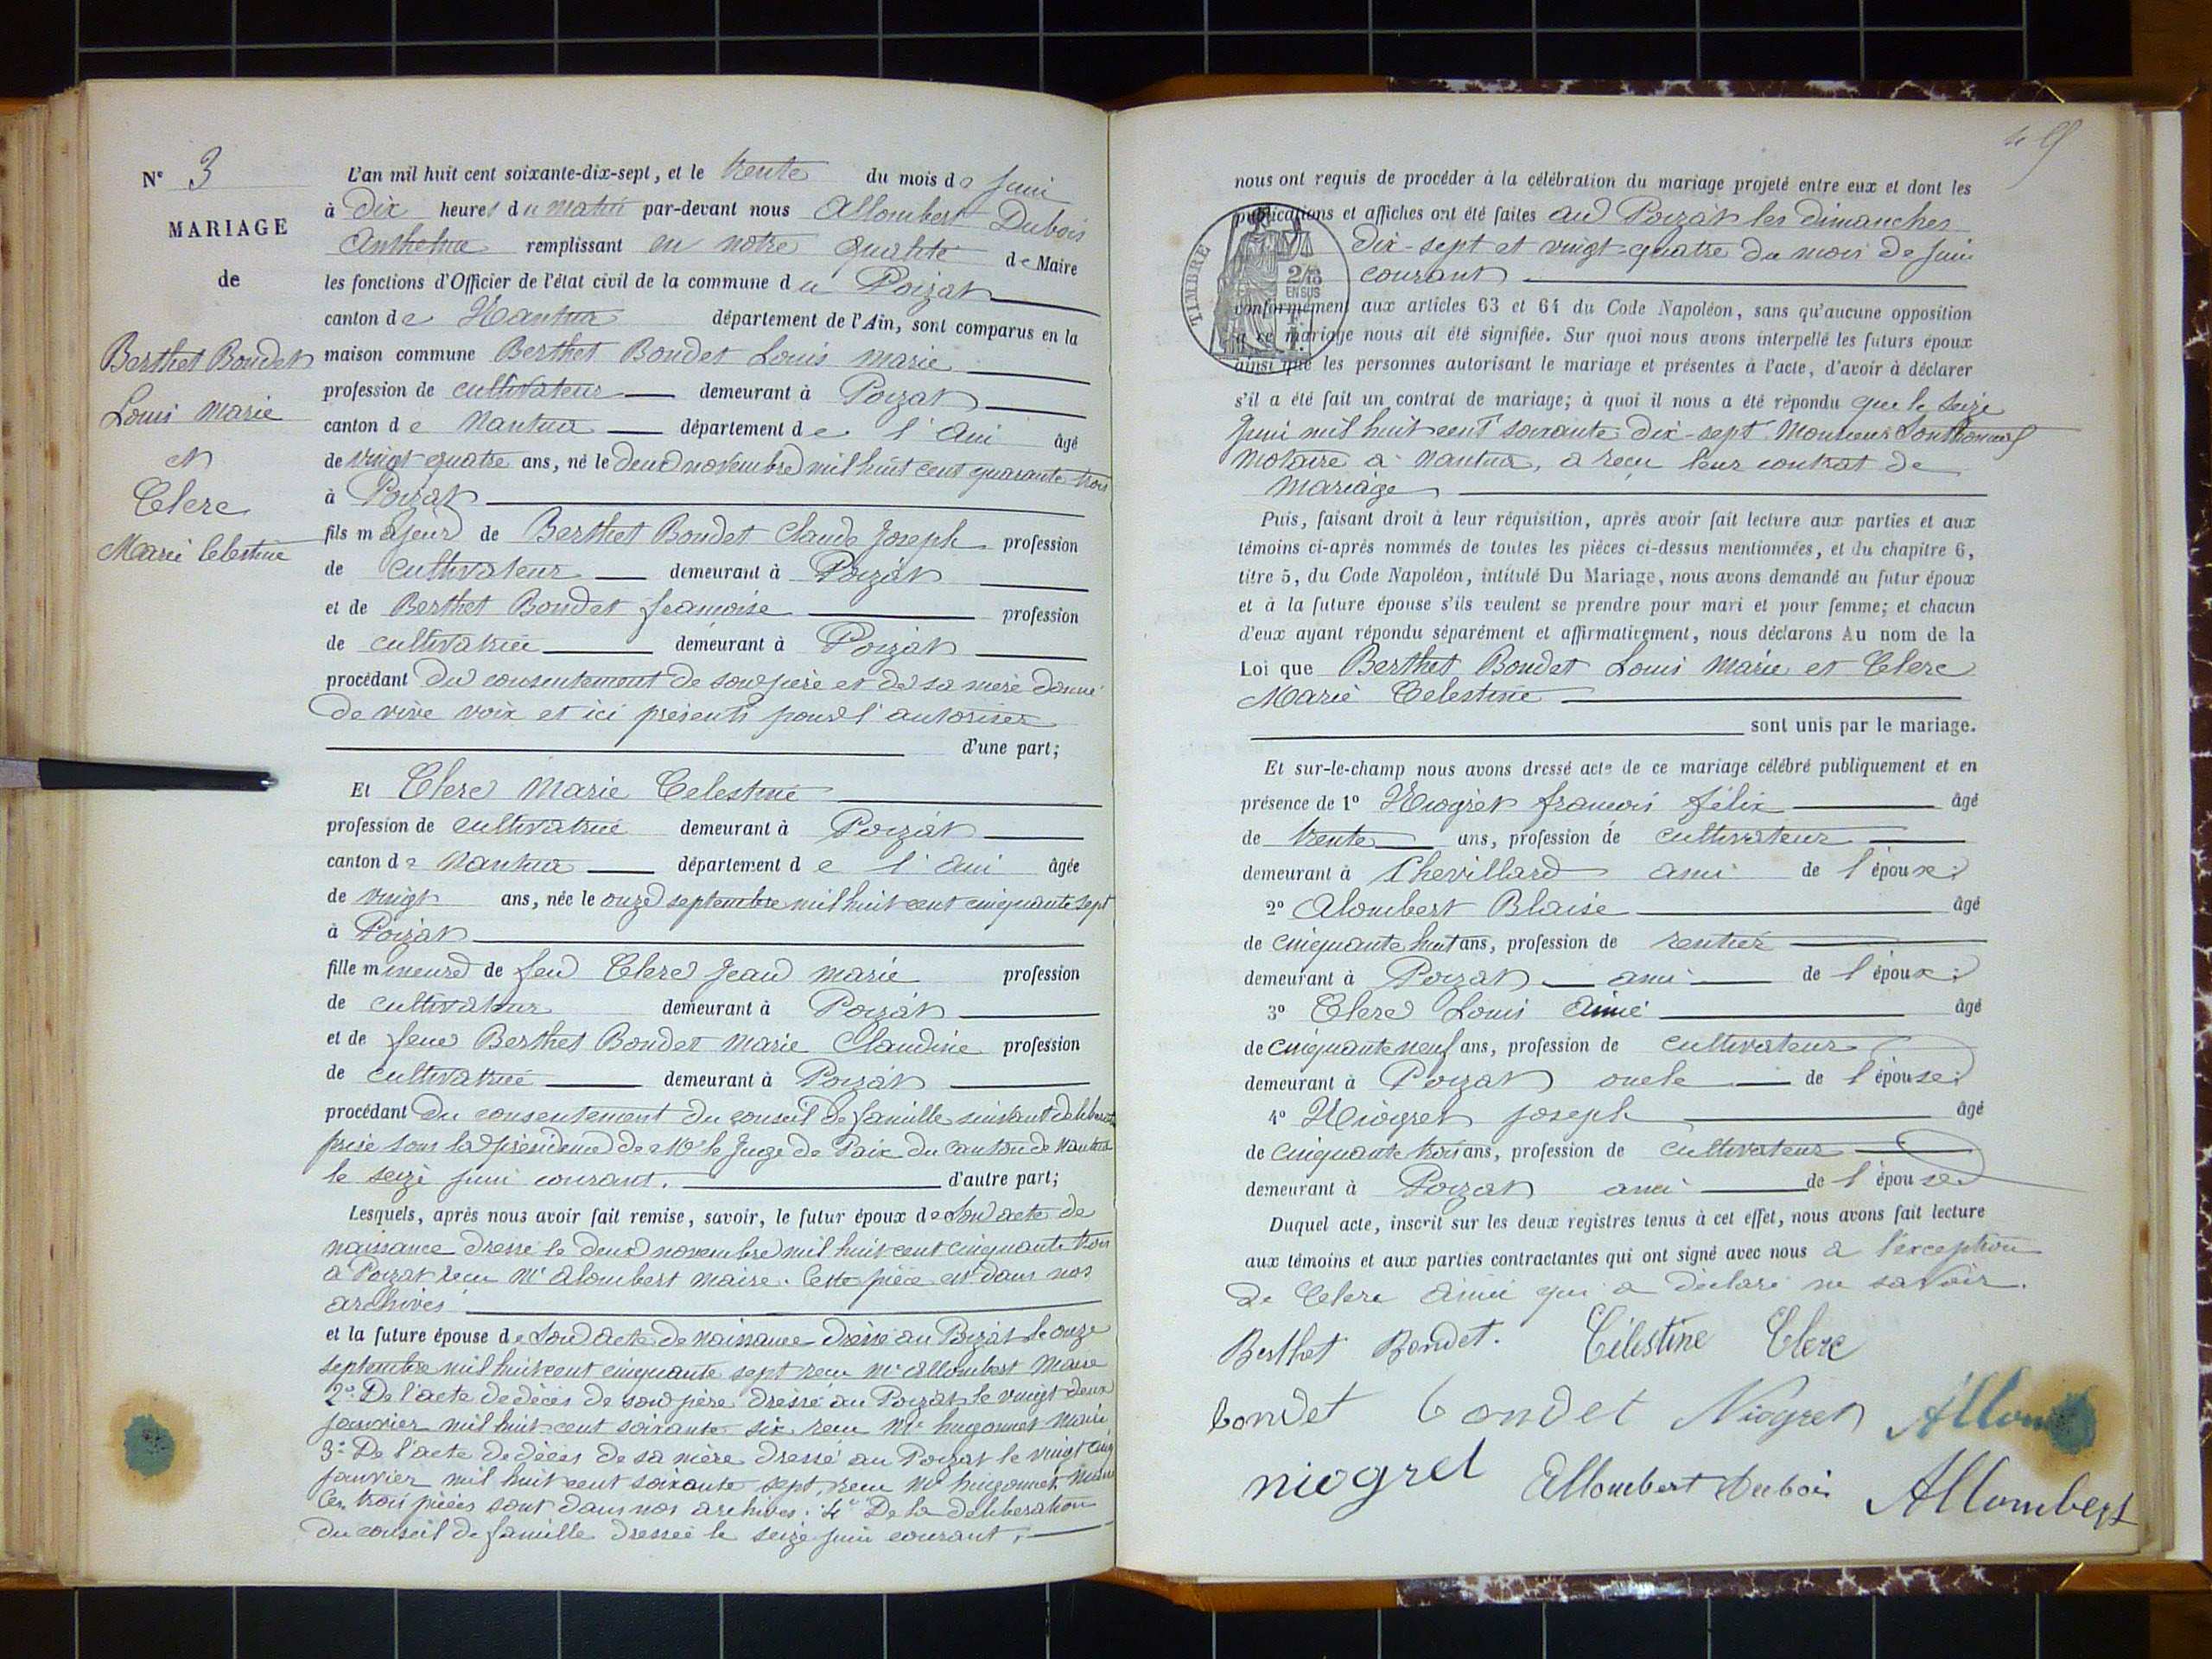 Nº 3
MARIAGE
de
Berthet Bondet
Louis Marie
et
Clerc
Marie Celestine
L'an mil huit cent soixante-dix-sept, et le trente du mois de juin
à dix heures du matin par-devant nous Allombert Dubois
Anthelme remplissant en notre qualité de Maire
les fonctions d'Officier de l'état civil de la commune du Poizat
canton de Nantua département de l'Ain, sont comparus en la
maison commune Berthet Bondet Louis Marie
profession de cultivateur demeurant à Poizat
canton de Nantua département de l'Ain âgé
de vingt-quatre ans, né le deux novembre mil huit cent quarante trois
à Poizat
fils majeur de Berthet Bondet Claude Joseph profession
de cultivateur demeurant à Poizat
et de Berthet Bondet françoise profession
de cultivatrice demeurant à Poizat
procédant du consentement de son père et de sa mère donné
de vive voix et ici présents pour l'autoriser
d'une part;
Et Clerc Marie Celestine
profession de cultivatrice demeurant à Poizat
canton de Nantua département de l'Ain âgée
de vingt ans, née le onze septembre mil huit cent cinquante sept
à Poizat
fille mineure de feu Clerc Jean Marie profession
de cultivateur demeurant à Poizat
et de feue Berthet Bondet Marie Claudine profession
de cultivatrice demeurant à Poizat
procédant du consentement du conseil de famille suivant délibération
prise sous la présidence de Mr le Juge de Paix du canton de Nantua
le seize juin courant. d'autre part;
Lesquels, après nous avoir fait remise, savoir, le futur époux de son acte de
naissance dressé le deux novembre mil huit cent cinquante trois
à Poizat reçu Mr Alombert Maire. Cette pièce est dans nos
archives
et la future épouse de son acte de naissance dressé au Poizat le onze
septembre mil huit cent cinquante sept reçu Mr Allombert Maire
2º De l'acte de décès de son père dressé au Poizat le vingt deux
janvier mil huit cent soixante six reçu Mr hugonnet Maire
3º De l'acte de décès de sa mère dressé au Poizat le vingt cinq
janvier mil huit cent soixante sept, reçu Mr hugonnet Maire
Ces trois pièces sont dans nos archives: 4º De la délibération
du conseil de famille dressée le seize juin courant.
49
nous ont requis de procéder à la célébration du mariage projeté entre eux et dont les
publications et affiches ont été faites au Poizat les dimanches
dix-sept et vingt-quatre du mois de juin
courant
TIMBRE
2/10
EN SUS
conformément aux articles 63 et 64 du Code Napoléon, sans qu'aucune opposition
à ce mariage nous ait été signifiée. Sur quoi nous avons interpellé les futurs époux
ainsi que les personnes autorisant le mariage et présentes à l'acte, d'avoir à déclarer
s'il a été fait un contrat de mariage; à quoi il nous a été répondu que le seize
juin mil huit cent soixante dix-sept Monsieur
Notaire à Nantua, a reçu leur contrat de
mariage
Puis, faisant droit à leur réquisition, après avoir fait lecture aux parties et aux
témoins ci-après nommés de toutes les pièces ci-dessus mentionnées, et du chapitre 6,
titre 5, du Code Napoléon, intitulé Du Mariage, nous avons demandé au futur époux
et à la future épouse s'ils veulent se prendre pour mari et pour femme; et chacun
d'eux ayant répondu séparément et affirmativement, nous déclarons Au nom de la
Loi que Berthet Bondet Louis Marie et Clerc
Marie Celestine
sont unis par le mariage.
Et sur-le-champ nous avons dressé acte de ce mariage célébré publiquement et en
présence de 1º Niogret françois félix âgé
de trente ans, profession de cultivateur
demeurant à Chevillard ami de l'époux;
2º Alombert Blaise âgé
de cinquante huit ans, profession de rentier
demeurant à Poizat ami de l'époux;
3º Clerc Louis Aimé âgé
de cinquante neuf ans, profession de cultivateur
demeurant à Poizat oncle de l'épouse;
4º Niogret joseph âgé
de cinquante trois ans, profession de cultivateur
demeurant à Poizat ami de l'épouse
Duquel acte, inscrit sur les deux registres tenus à cet effet, nous avons fait lecture
aux témoins et aux parties contractantes qui ont signé avec nous à l'exception
de Clerc Aimé qui a déclaré ne savoir.
Berthet Bondet. Célestine Clerc
bondet bondet Niogret Allom
niogret Allombert Dubois Allombert